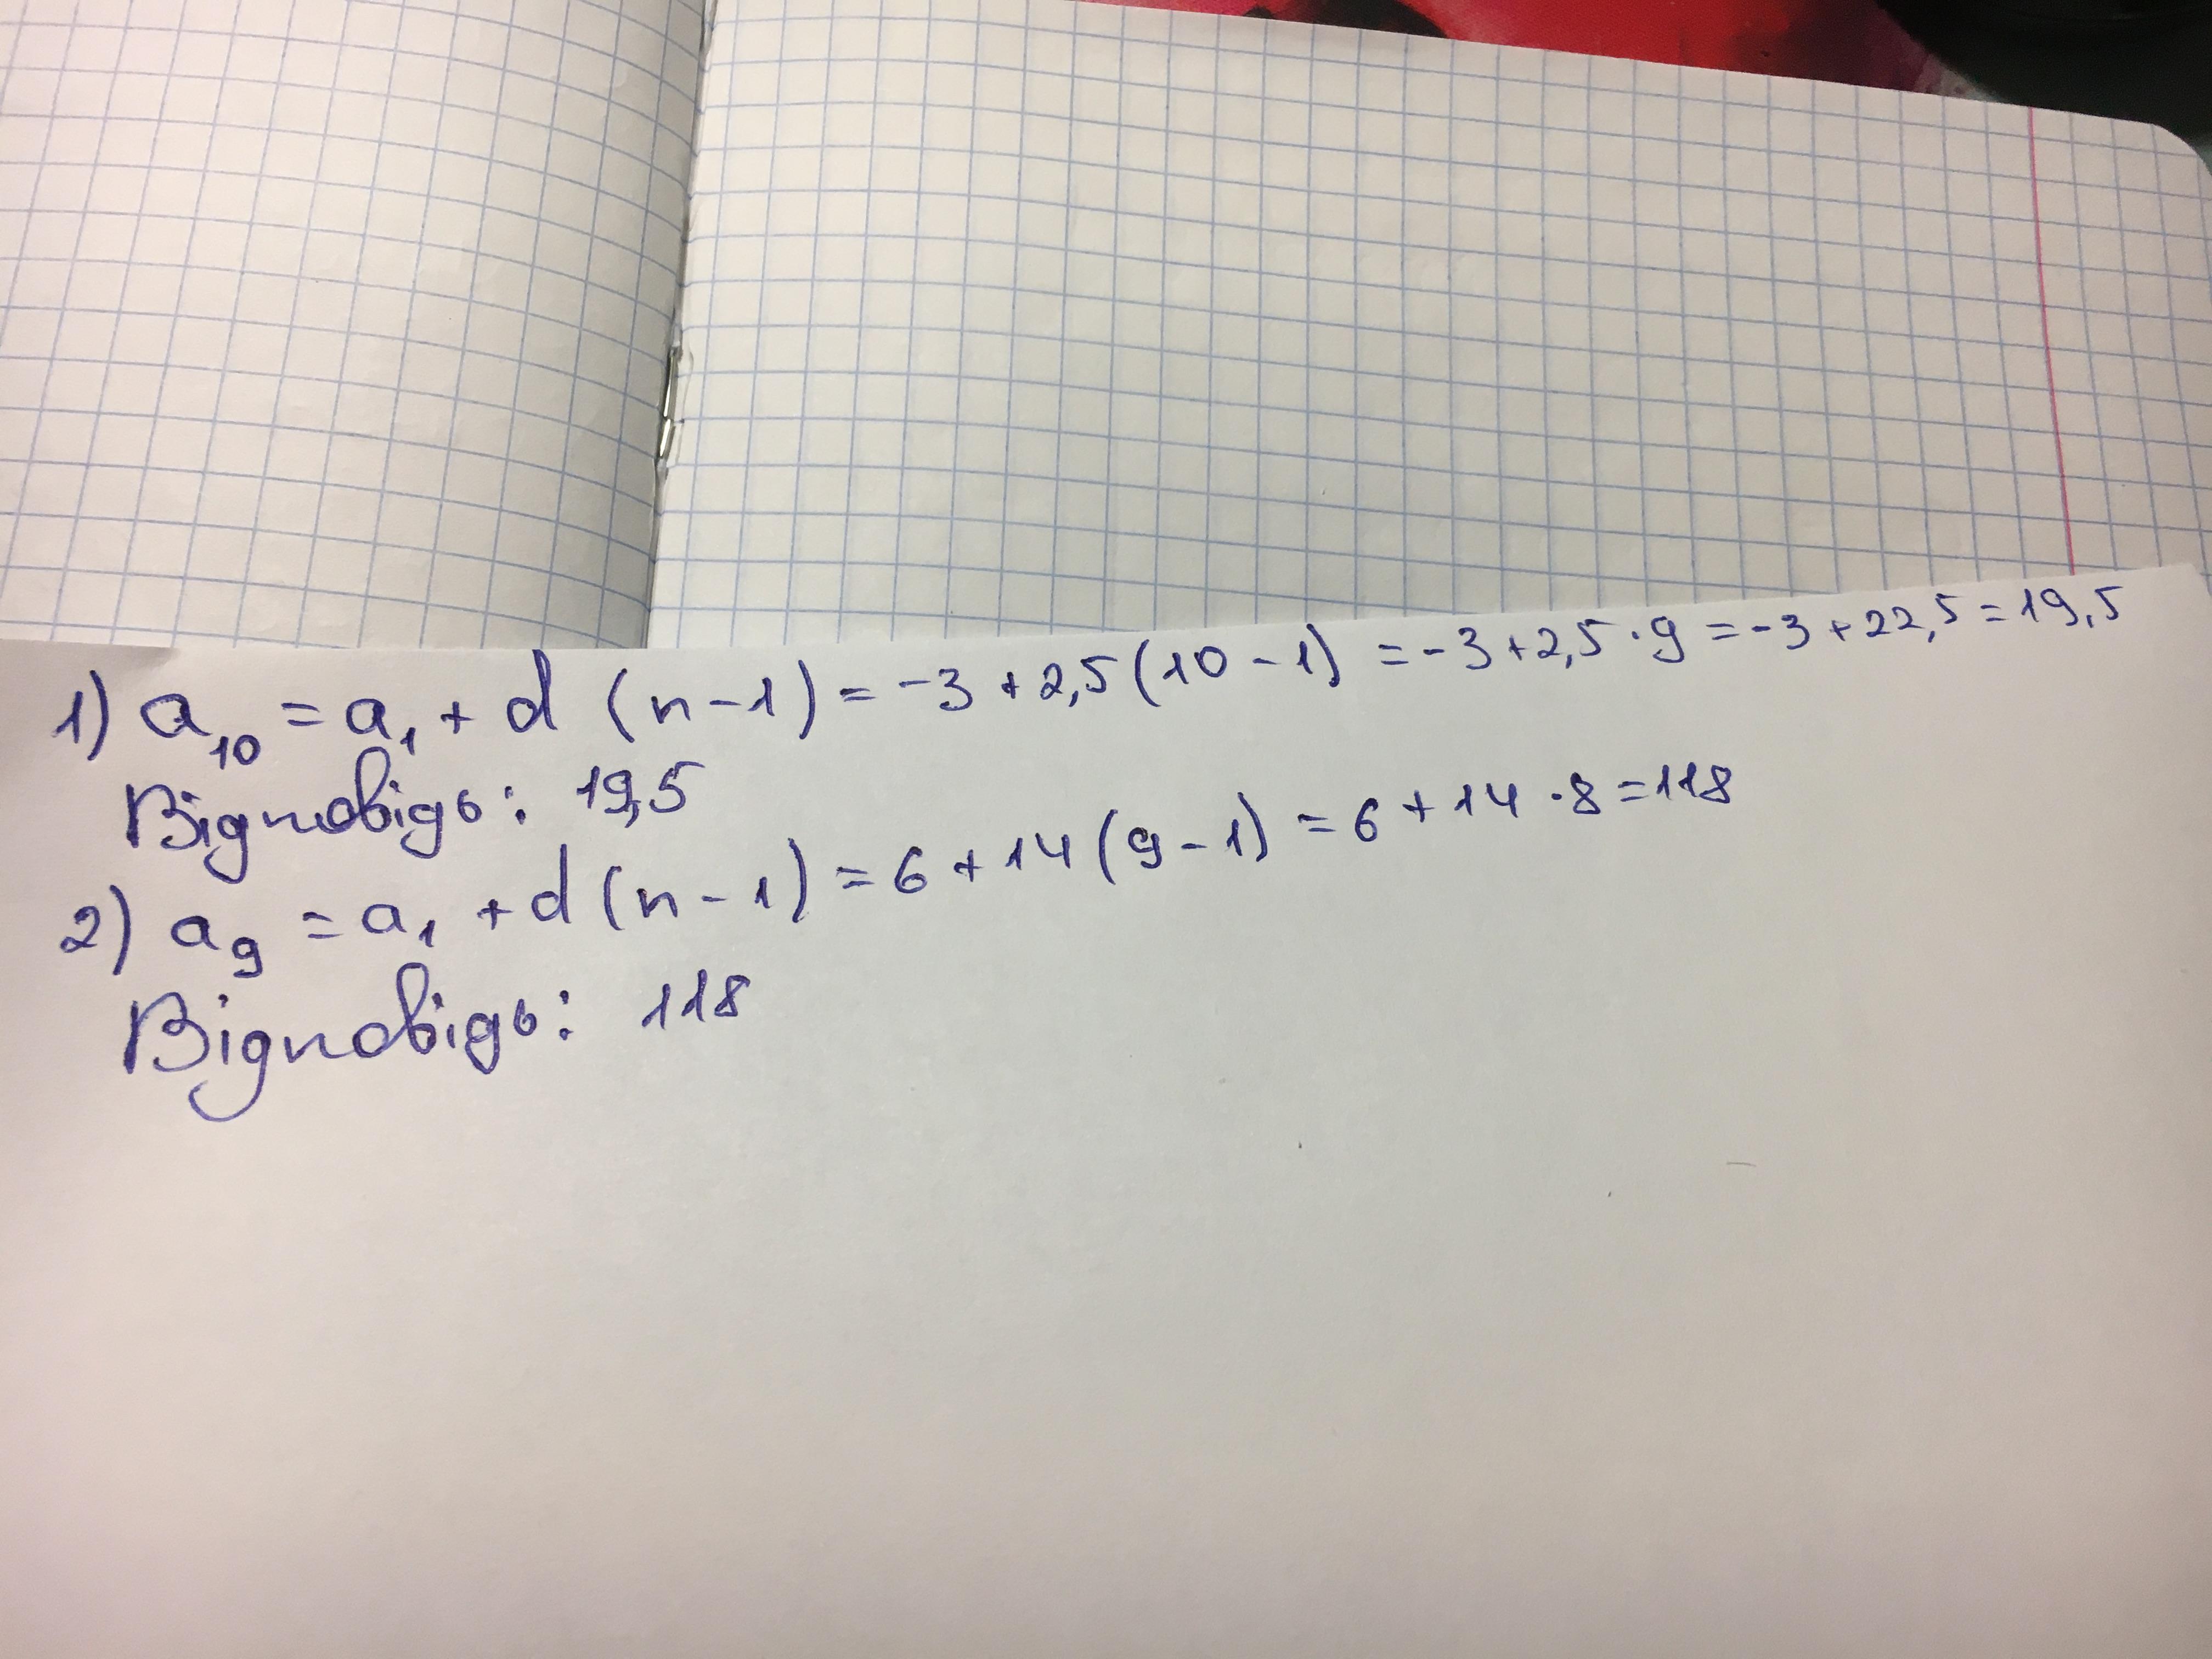 1) a₁₀ = a₁ + d (n-1) = -3 + 2,5 (10-1) = -3+2,5·9 = -3+22,5=19,5
Відповідь: 19,5
2) a₉ = a₁ + d (n-1) = 6 + 14 (9-1) = 6 + 14 ·8=118
Відповідь: 118